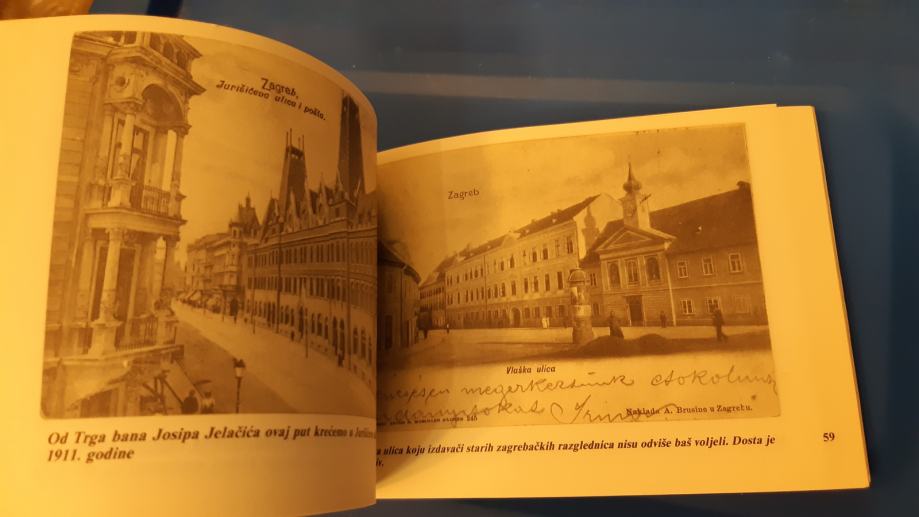 Zagreb,
Jurišićeva ulica i pošta.
Od Trga bana Josipa Jelačića ovaj put krećemo u
1911. godine
Zagreb
Vlaška ulica
megerkeztünk csokolunk
Naklada A. Brusina u Zagrebu.
ulica koju izdavači starih zagrebačkih razglednica nisu odviše baš voljeli. Dosta je
59